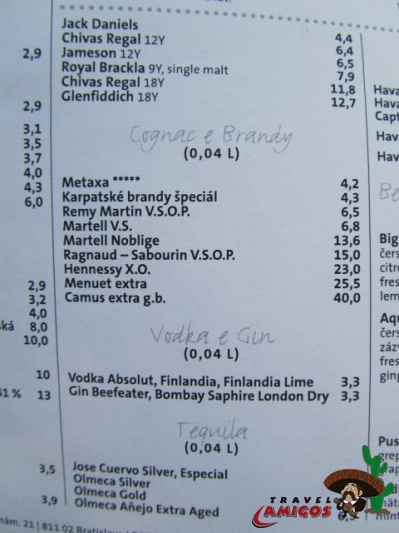 Jack Daniels 4,4
Chivas Regal 12Y 6,4
Jameson 12Y 6,5
Royal Brackla 9Y, single malt 7,9
Chivas Regal 18Y 11,8
Glenfiddich 18Y 12,7
Cognac e Brandy
(0,04 L)
Metaxa ***** 4,2
Karpatské brandy špeciál 4,3
Remy Martin V.S.O.P. 6,5
Martell V.S. 6,8
Martell Noblige 13,6
Ragnaud – Sabourin V.S.O.P. 15,0
Hennessy X.O. 23,0
Menuet extra 25,5
Camus extra g.b. 40,0
Vodka e Gin
(0,04 L)
Vodka Absolut, Finlandia, Finlandia Lime 3,3
Gin Beefeater, Bombay Saphire London Dry 3,3
Tequila
(0,04 L)
Jose Cuervo Silver, Especial
Olmeca Silver
Olmeca Gold
Olmeca Añejo Extra Aged
2,9
2,9
3,1
3,5
3,7
4,0
4,3
6,0
2,9
3,2
4,0
ská 8,0
10,0
10
% 13
3,5
3,9
nám. 21 | 811 02 Bratislava
Hava
Hava
Capt
Hava
Hav
Be
Big
čers
čer
citro
fres
lem
Aqu
čers
záz
fres
ging
Pus
grep
TRAVEL
AMIGOS